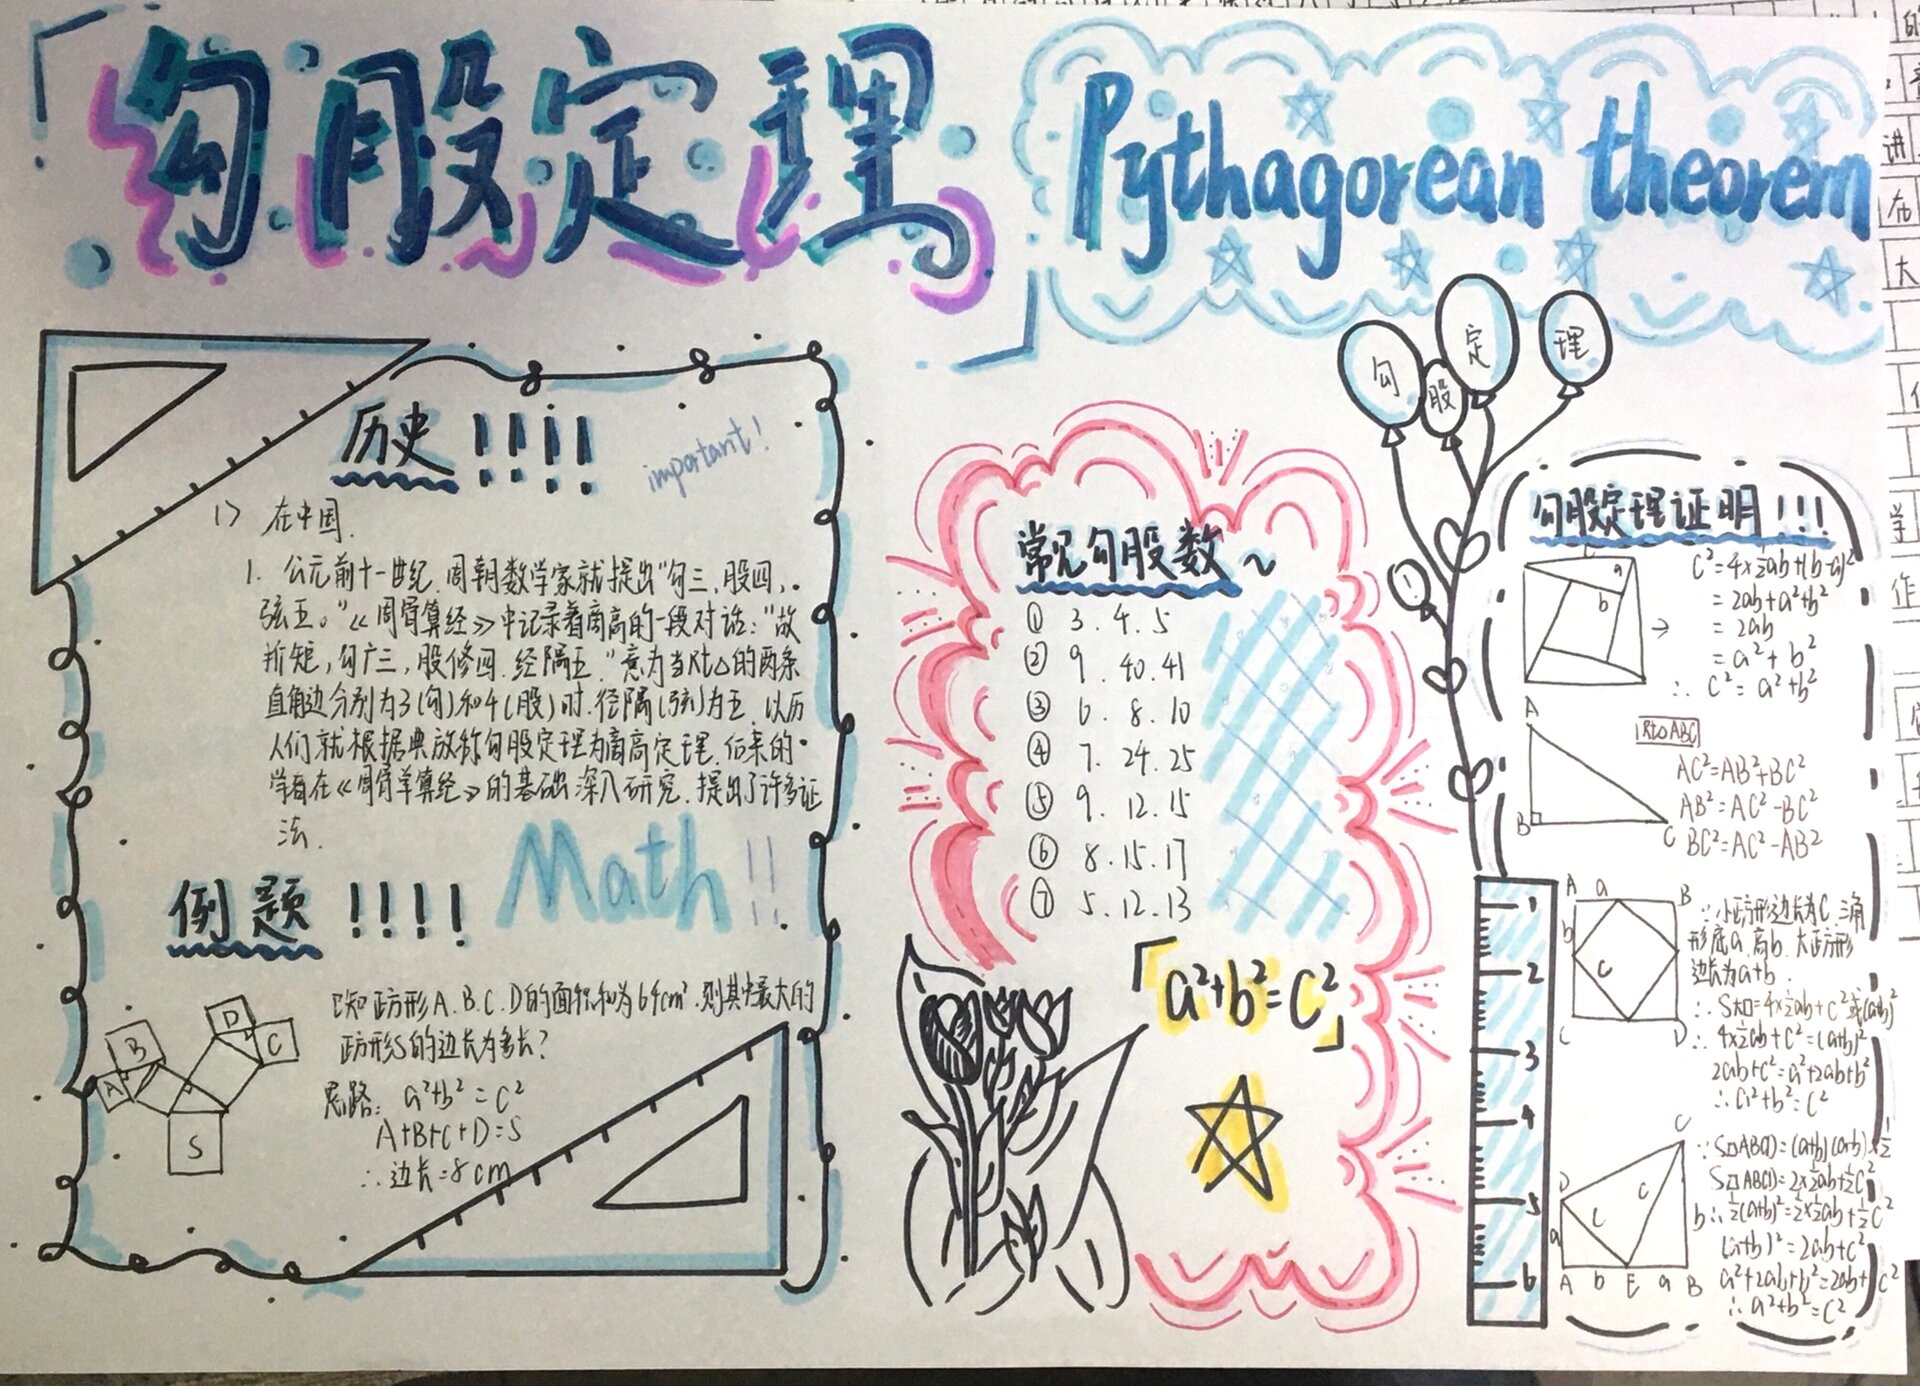 「勾股定理」
Pythagorean theorem
勾 股 定 理
历史!!!!
important!
1> 在中国.
1. 公元前十一世纪,周朝数学家就提出"勾三,股四,
弦五。"《周骨算经》中记录着商高的一段对话:"故
折矩,勾广三,股修四,经隅五."意为当Rt△的两条
直角边分别为3(勾)和4(股)时,径隅(弦)为五,以历
人们就根据典故称勾股定理为商高定理.后来的
学者在《周骨算经》的基础深入研究,提出了许多证
法.
Math!!
例题!!!!
已知正方形A.B.C.D的面积和为64cm².则其中最大的
正方形S的边长为多长?
思路: a²+b²=c²
A+B+C+D=S
∴边长=8cm
A B D C S
常见勾股数~
① 3.4.5
② 9.40.41
③ 6.8.10
④ 7.24.25
⑤ 9.12.15
⑥ 8.15.17
⑦ 5.12.13
「a²+b²=c²」
1
2
3
4
5
6
勾股定理证明!!!
a
b
C²=4×½ab+(b-a)²
=2ab+a²+b²
=2ab
=a²+b²
∴ C²=a²+b²
A
B
C
Rt△ABC
AC²=AB²+BC²
AB²=AC²-BC²
BC²=AC²-AB²
A a B
b
c
C D
∵小正方形边长为C.三角
形底a.高b.大正方形
边长为a+b.
∴ S大口=4×½ab+c²或(a+b)²
∴ 4×½ab+c²=(a+b)²
2ab+c²=a²+2ab+b²
∴ a²+b²=c²
C
D
c
c
a
b
A b E a B
∵S□ABCD=(a+b)(a+b)×½
S□ABCD=2×½ab+½c²
∴½(a+b)²=2×½ab+½c²
(a+b)²=2ab+c²
a²+2ab+b²=2ab+c²
∴ a²+b²=c²